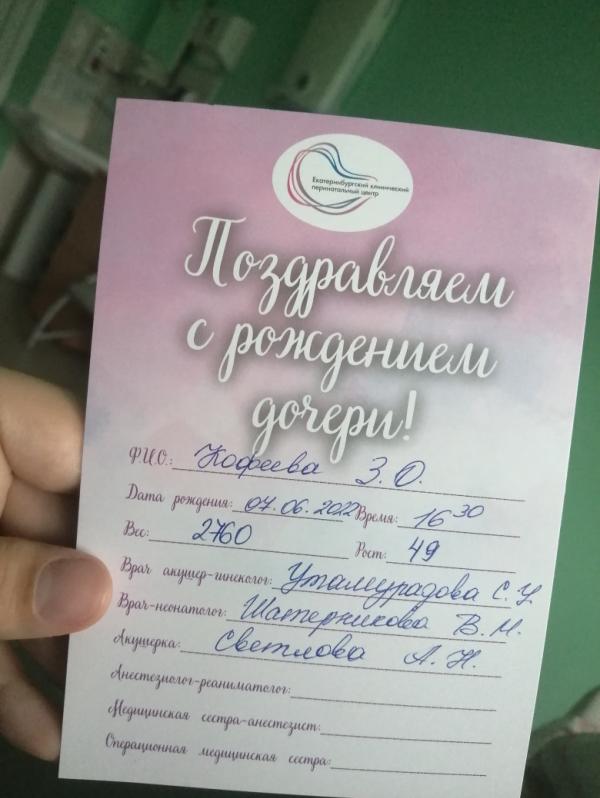 Екатеринбургский клинический
перинатальный центр
Поздравляем
с рождением
дочери!
Ф.И.О.: Кофеева З. О.
Дата рождения: 07.06.2022 Время: 16 30
Вес: 2760 Рост: 49
Врач акушер-гинеколог: Утамурадова С. У.
Врач-неонатолог: Шатерникова В. М.
Акушерка: Светлова А. Н.
Анестезиолог-реаниматолог:
Медицинская сестра-анестезист:
Операционная медицинская сестра: